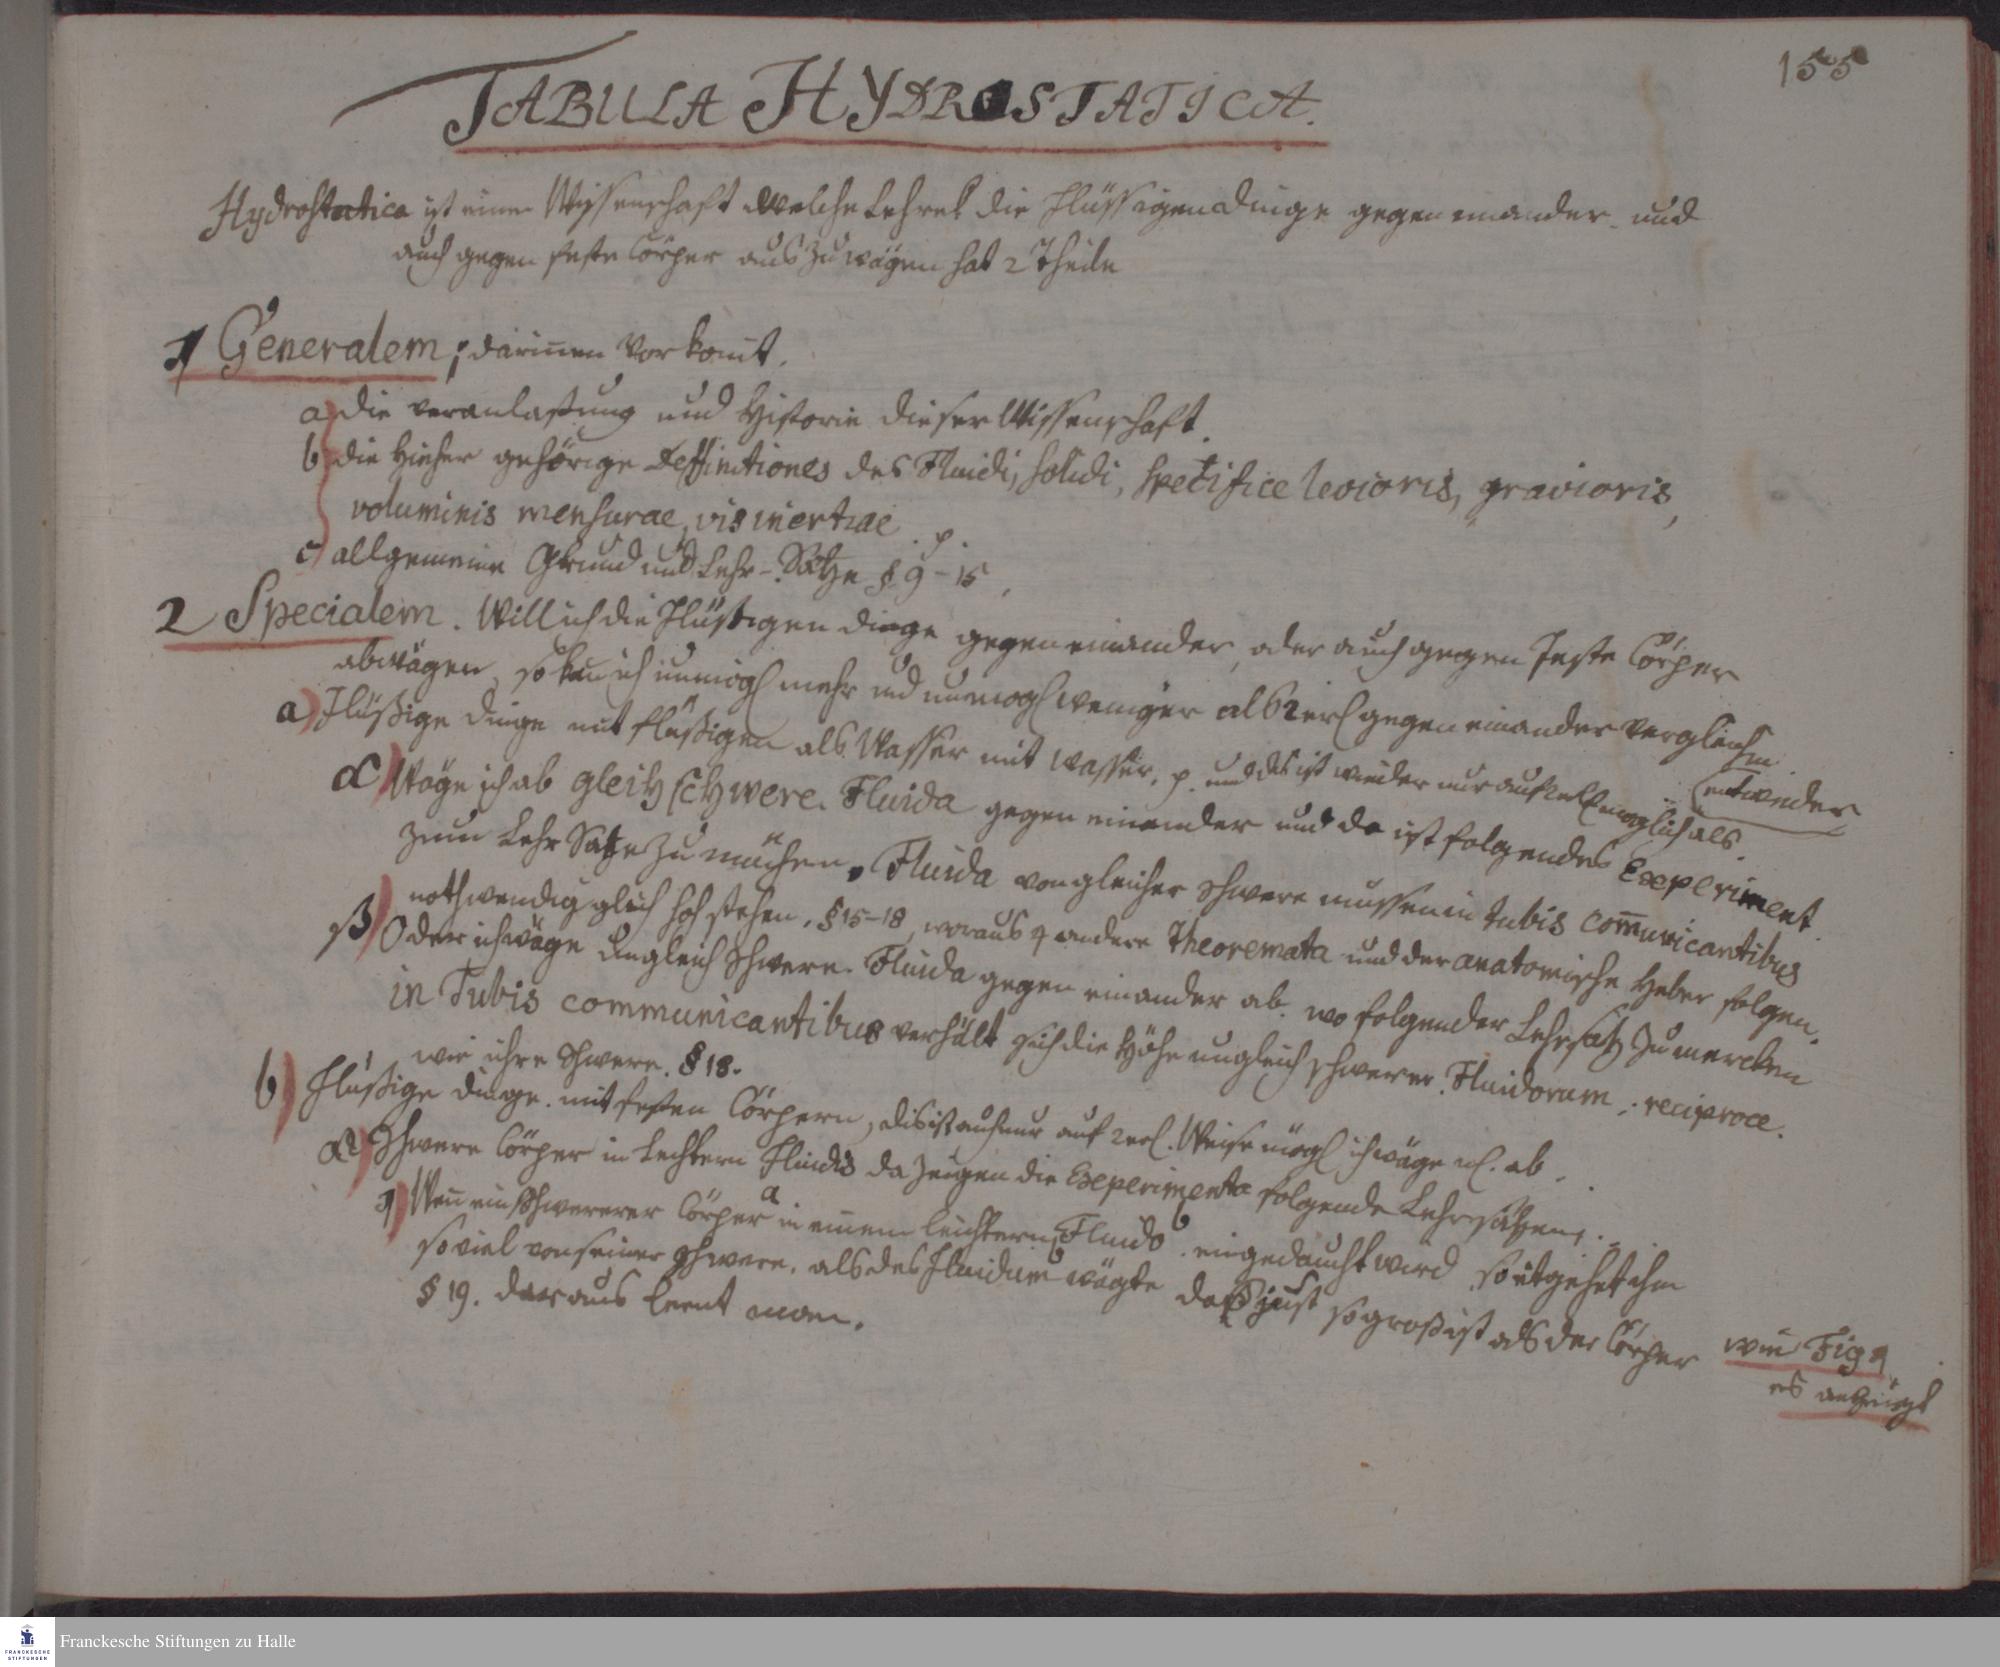 155
TABULA HYDROSTATICA.
Hydrostatica ist eine Wissenschaft welche lehret die flüssigen dinge gegen einander und
auch gegen feste Cörper aus zu wägen hat 2 Theile
1 Generalem; darinnen vorkomt.
a) die veranlaßung und Historie dieser Wissenschaft.
b) die hieher gehörige Deffinitiones des Fluidi, solidi, specifice levioris, gravioris,
voluminis mensurae, vis inertiae. p.
c) allgemeine Grund und Lehr-Sätze § 9-15,
2 Specialem. Will ich die flüßigen dinge gegen einander, oder auch gegen feste Cörper
abwägen, so kan ich unmögl mehr und unmögl weniger als 2erl gegen einander vergleichen
a) Flüßige dinge mit flüßigen als Wasser mit wasser. p. und das ist wieder nur auf 2erl möglich als.
entweder
α) Wäge ich ab gleich schwere Fluida gegen einander und da ist folgendes Experiment
zum Lehr Satze zu machen. Fluida von gleicher schwere müssen in tubis com̅unicantibus
nothwendig gleich hoch stehen. § 15-18, woraus 4 andere Theoremata und der anatomische Heber folgen.
β) Oder ich wäge ungleich schwere Fluida gegen einander ab. wo folgender Lehrsatz zu mercken
in Tubis communicantibus verhält sich die Höhe ungleich schwerer Fluidorum, reciproce.
wie ihre schwere. § 18.
b) Flüßige dinge mit festen Cörpern, dis ist auch nur auf 2erl. Weise mögl ich wäge nl. ab.
α) Schwere Cörper in leichtern Fluidis da zeigen die Experimenta folgende Lehrsätze.
1) Wen̅ ein schwererer Cörper a in einem leichtern Fluido b eingedaucht wird so entgehet ihm
so viel von seiner schwere, als das Fluidum wägte das just so groß ist als der Cörper
wie Fig 1
es anzeigt
§ 19. daraus lernt man.
Franckesche Stiftungen zu Halle
FRANCKESCHE
STIFTUNGEN